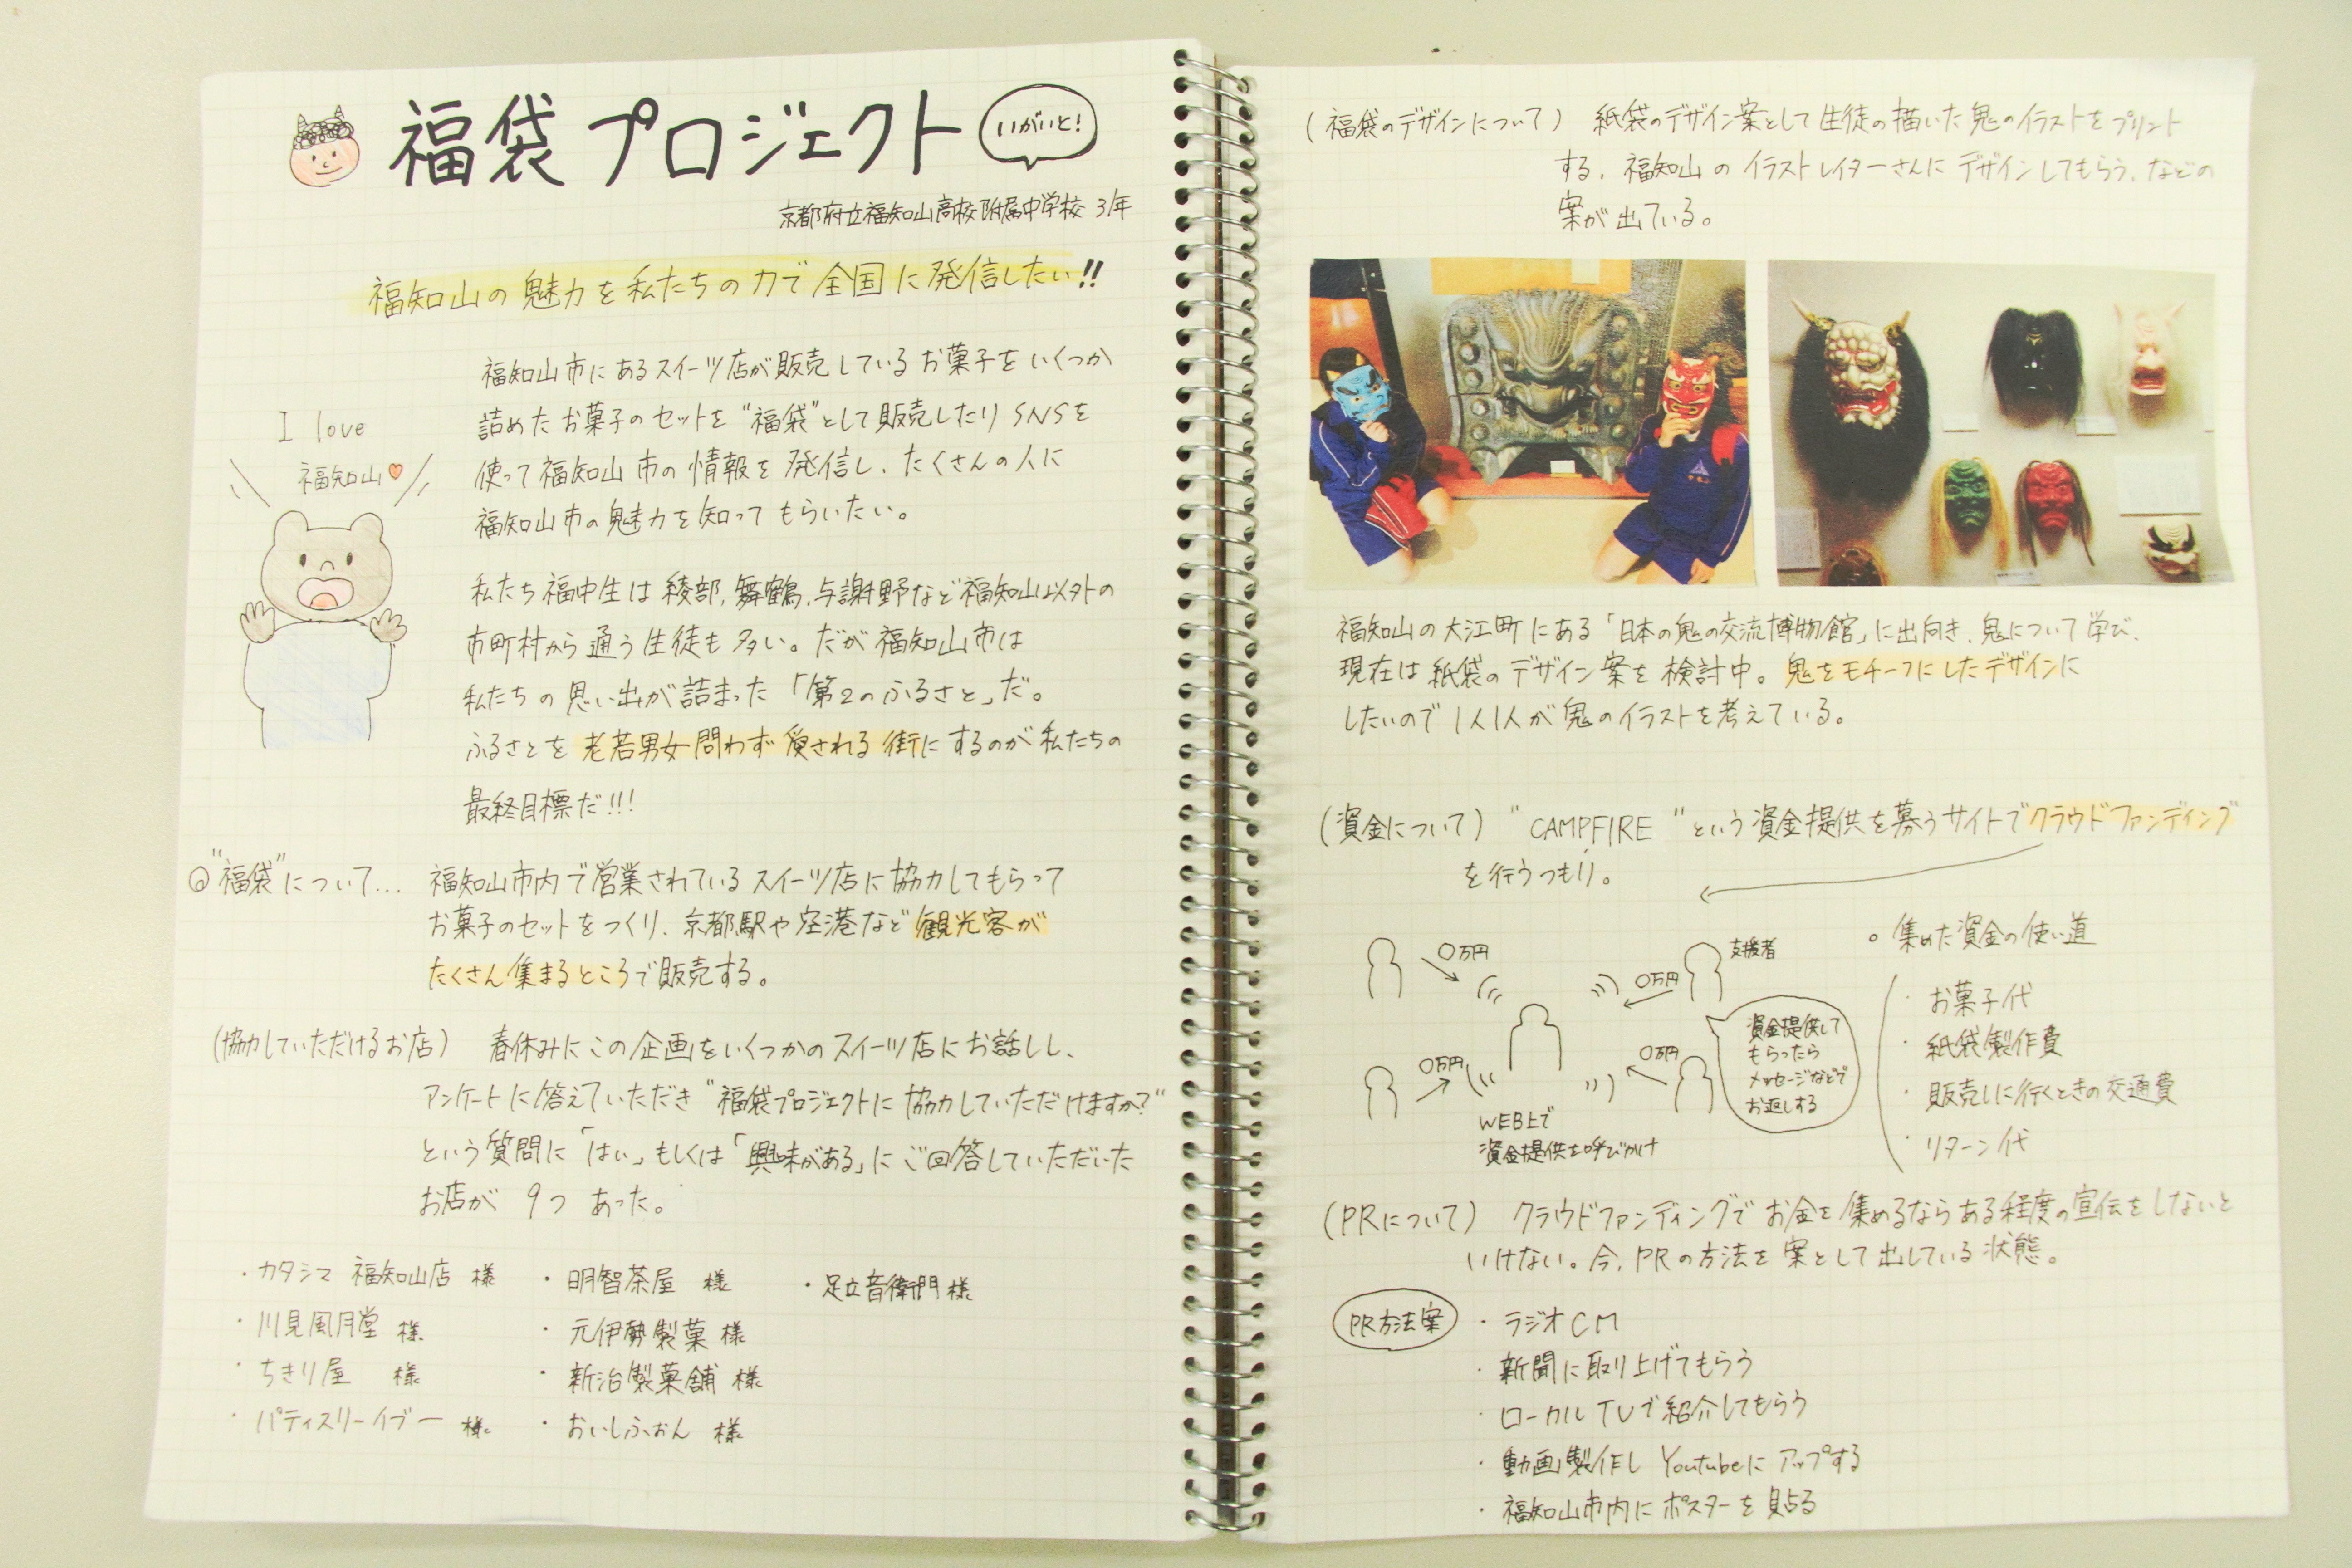 福袋プロジェクト
いがいと!
京都府立福知山高校附属中学校 3年
福知山の魅力を私たちの力で全国に発信したい!!
福知山市にあるスイーツ店が販売しているお菓子をいくつか
詰めたお菓子のセットを"福袋"として販売したりSNSを
使って福知山市の情報を発信し、たくさんの人に
福知山市の魅力を知ってもらいたい。
I love
福知山
私たち福中生は綾部、舞鶴、与謝野など福知山以外の
市町村から通う生徒も多い。だが福知山市は
私たちの思い出が詰まった「第2のふるさと」だ。
ふるさとを老若男女問わず愛される街にするのが私たちの
最終目標だ!!!
◎"福袋"について… 福知山市内で営業されているスイーツ店に協力してもらって
お菓子のセットをつくり、京都駅や空港など観光客が
たくさん集まるところで販売する。
(協力していただけるお店) 春休みにこの企画をいくつかのスイーツ店にお話しし、
アンケートに答えていただき"福袋プロジェクトに協力していただけますか?"
という質問に「はい」もしくは「興味がある」にご回答していただいた
お店が 9つ あった。
・カタシマ 福知山店 様 ・明智茶屋 様 ・足立音衛門 様
・川見風月堂 様 ・元伊勢製菓 様
・ちきり屋 様 ・新治製菓舗 様
・パティスリーイブー 様 ・おいしふぉん 様
(福袋のデザインについて) 紙袋のデザイン案として生徒の描いた鬼のイラストをプリント
する、福知山のイラストレイターさんにデザインしてもらう、などの
案が出ている。
福知山の大江町にある「日本の鬼の交流博物館」に出向き、鬼について学び、
現在は紙袋のデザイン案を検討中。鬼をモチーフにしたデザインに
したいので1人1人が鬼のイラストを考えている。
(資金について) "CAMPFIRE"という資金提供を募うサイトでクラウドファンディング
を行うつもり。
〇万円
〇万円
支援者
〇万円
〇万円
資金提供して
もらったら
メッセージなどで
お返しする
WEB上で
資金提供を呼びかけ
。集めた資金の使い道
・お菓子代
・紙袋製作費
・販売しに行くときの交通費
・リターン代
(PRについて) クラウドファンディングでお金を集めるならある程度の宣伝をしないと
いけない。今、PRの方法を案として出している状態。
PR方法案
・ラジオCM
・新聞に取り上げてもらう
・ローカルTVで紹介してもらう
・動画製作しYoutubeにアップする
・福知山市内にポスターを貼る